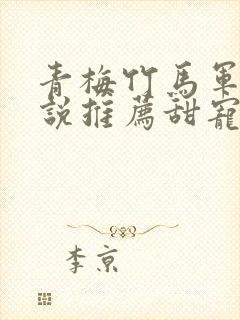 青梅竹馬軍
說推薦甜寵
李京